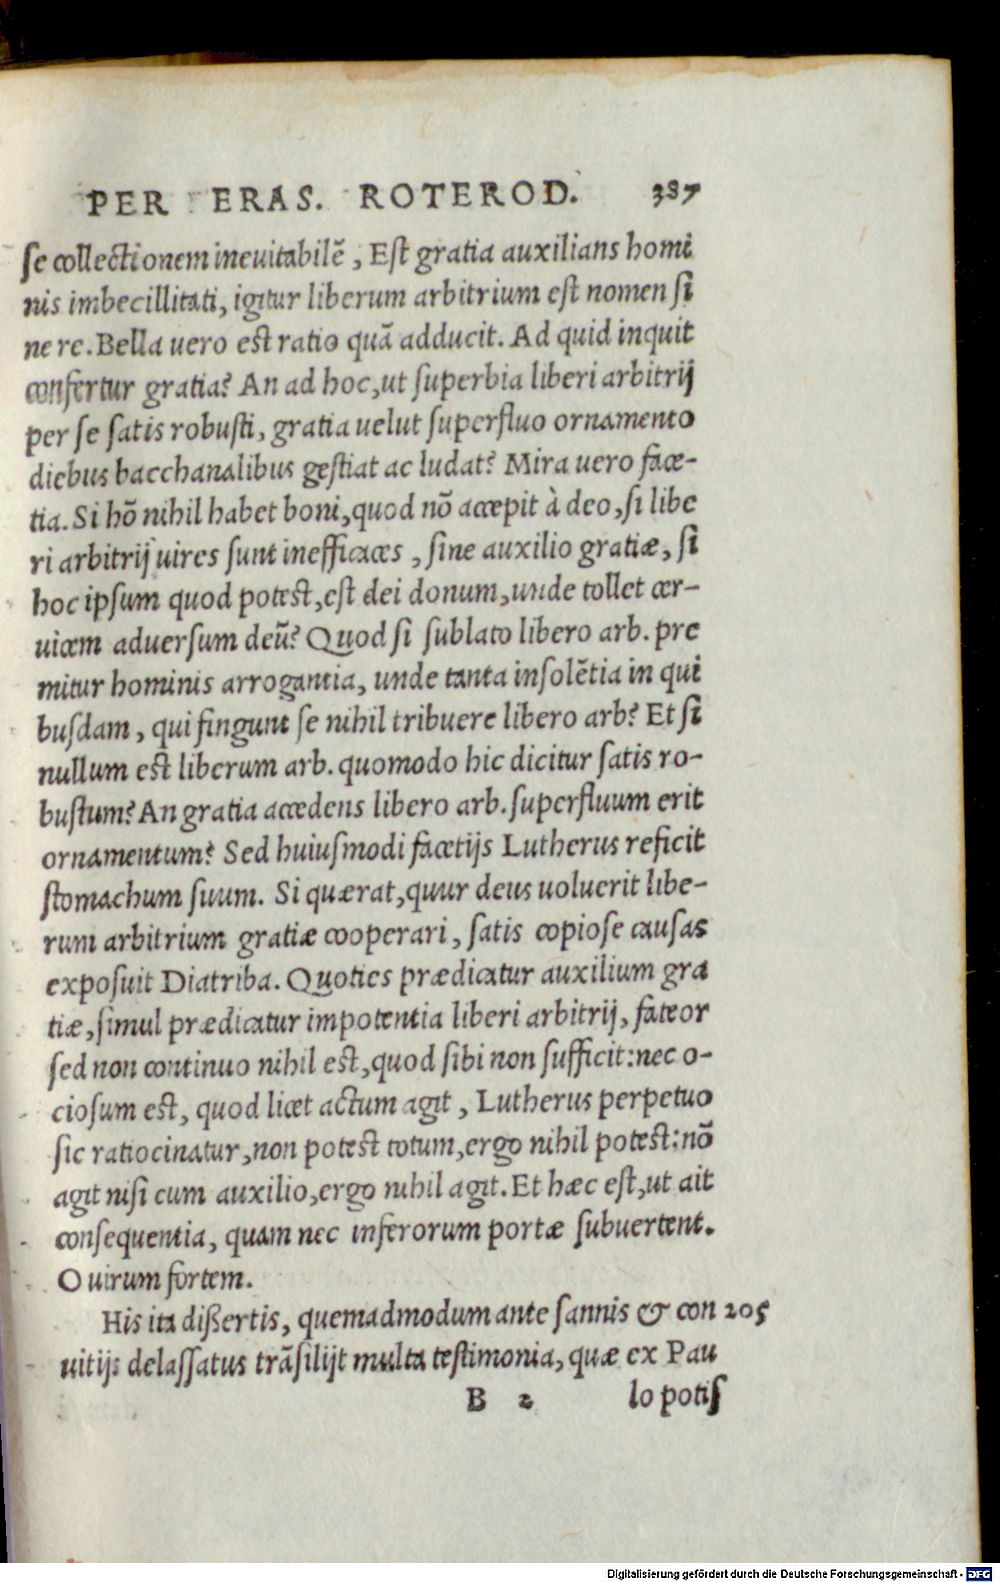 PER ERAS. ROTEROD. 387
se collectionem ineuitabilē, Est gratia auxilians homi
nis imbecillitati, igitur liberum arbitrium est nomen si
ne re. Bella uero est ratio quā adducit. Ad quid inquit
confertur gratia? An ad hoc, ut superbia liberi arbitrij
per se satis robusti, gratia uelut superfluo ornamento
diebus bacchanalibus gestiat ac ludat? Mira uero face-
tia. Si hō nihil habet boni, quod nō accepit à deo, si libe
ri arbitrij uires sunt inefficaces, sine auxilio gratiæ, si
hoc ipsum quod potest, est dei donum, unde tollet cer-
uicem aduersum deū? Quod si sublato libero arb. pre
mitur hominis arrogantia, unde tanta insolētia in qui
busdam, qui fingunt se nihil tribuere libero arb? Et si
nullum est liberum arb. quomodo hic dicitur satis ro-
bustum? An gratia accedens libero arb. superfluum erit
ornamentum? Sed huiusmodi facetijs Lutherus reficit
stomachum suum. Si quærat, quur deus uoluerit libe-
rum arbitrium gratiæ cooperari, satis copiose causas
exposuit Diatriba. Quoties prædicatur auxilium gra
tiæ, simul prædicatur impotentia liberi arbitrij, fateor
sed non continuo nihil est, quod sibi non sufficit: nec o-
ciosum est, quod licet actum agit, Lutherus perpetuo
sic ratiocinatur, non potest totum, ergo nihil potest: nō
agit nisi cum auxilio, ergo nihil agit. Et hæc est, ut ait
consequentia, quam nec inferorum portæ subuertent.
O uirum fortem.
His ita dißertis, quemadmodum ante sannis & con 205
uitijs delassatus trāsilijt multa testimonia, quæ ex Pau
B 2 lo potis
Digitalisierung gefördert durch die Deutsche Forschungsgemeinschaft - DFG